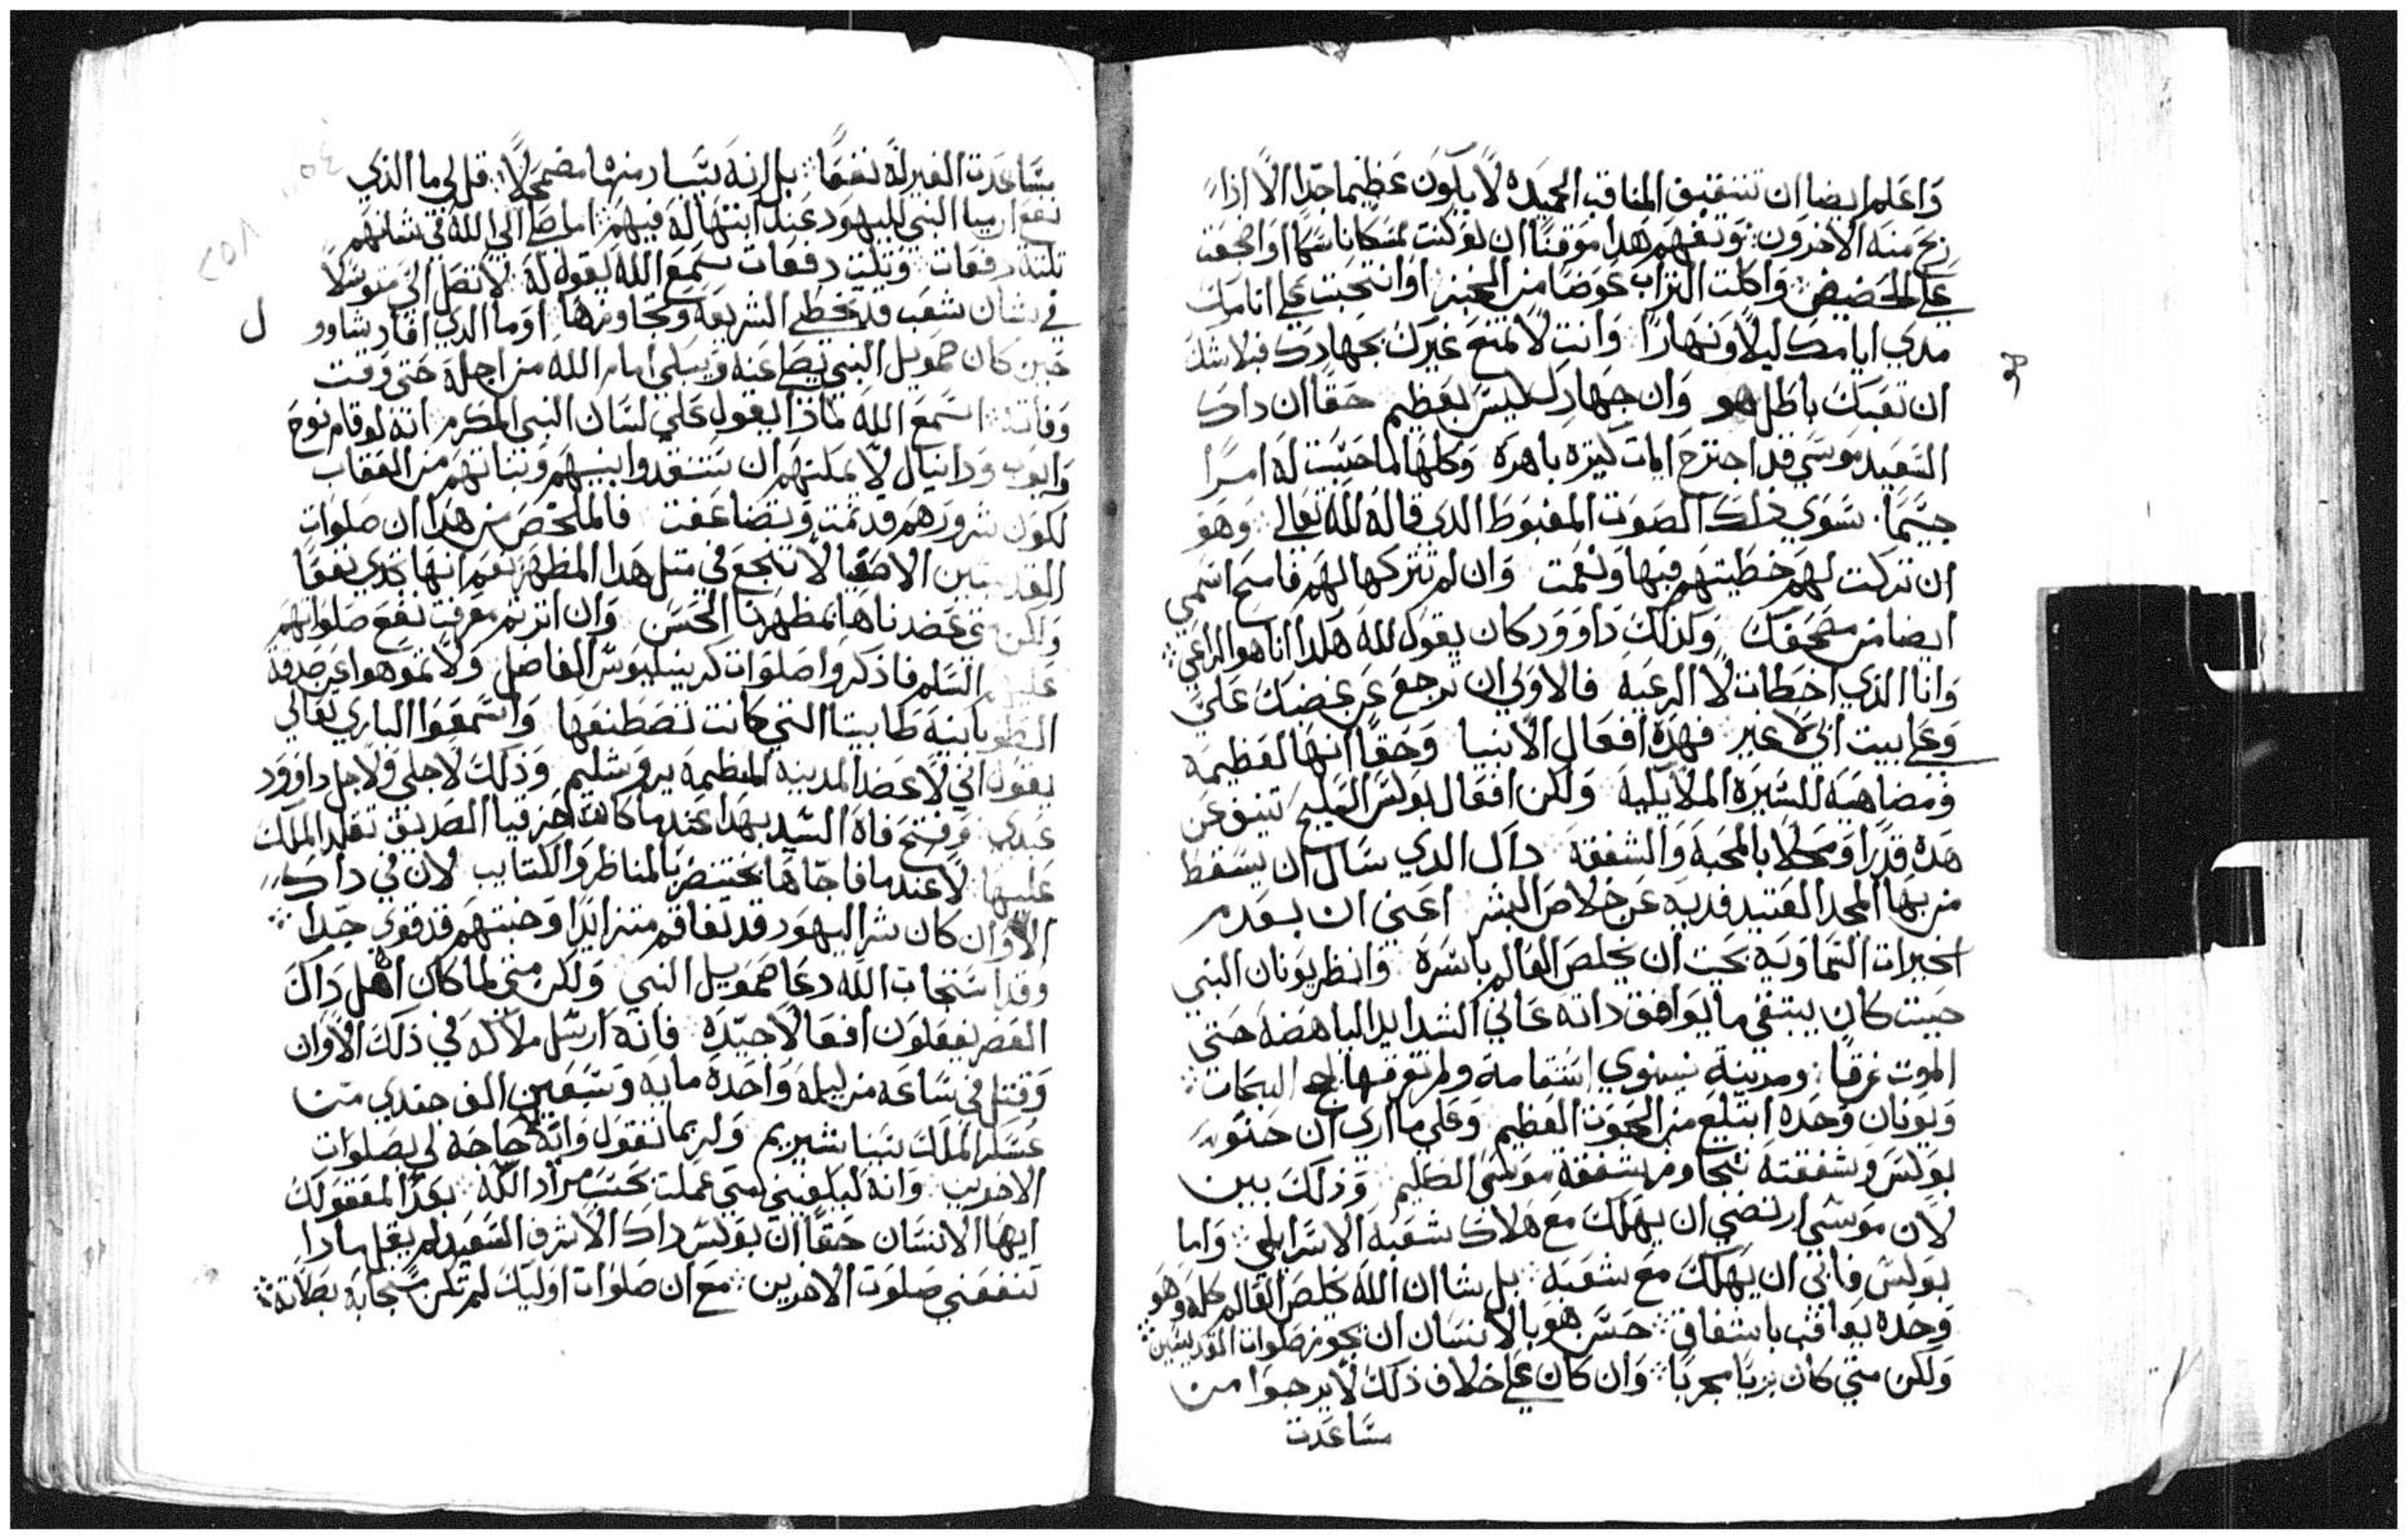 واعلم ايضا ان تتقيق المناقب الحميده لا يكون عظيما جدا الا اذا
ربح منه الاخرون وتفهم هذا موقنا ان لو كنت نسكا ناسكا او اضجعت
علي الحضيض واكلت التراب عوضا من الخبز او انتحبت علي اناملك
مدي ايامك ليلا ونهارا وانت لا تمتع غيرك بجهادك فبلا شك
ان تعبك باطل هو وان جهادك ليس بعظيم حقا ان داك
السعيد موسي قد اجترح ايات كثيره باهره وكلها لما حسبت له امرا
جسما سوي ذلك الصوت المغبوط الدي قاله لله تعالي وهو
ان تركت لهم خطيتهم فبها ونعمت وان لم تتركها لهم فامح اسمي
ايضا من مصحفك ولذلك داوود كان يقول لله هكدا انا هو الراعي
وانا الذي اخطات لا الرعيه فالاولي ان ترجع عن غضبك علي
وعلي بيت ابي لا غير فهده افعال الانبيا وحقا انها لعظيمه
ومضاهيه للسيره الملايكيه ولكن افعال بولس البليغ تنيف عن
هده قدرا ومحلا بالمحبه والشفقه داك الدي سال ان يسقط
من بها المجد العتيد فديه عن خلاص البشر اعني ان يعدم
الخيرات السماويه بحيث ان يخلص العالم باسره وانظر يونان النبي
حيث كان يبتغي ما يوافق داته عاني الشدايد الباهضه حتي
الموت غرقا ومدينة نينوي استقامة ولم تعرقها لجج البحار
ويونان وحده ابتلع من الحوت العظيم وعلي ما اري ان حنو
بولس وشفقته تتجاوز شفقة موسي الكليم وذلك بين
لان موسي ارتضي ان يهلك مع هلاك شعبه الاسرايلي واما
بولس فابي ان يهلك مع شعبه بل شا ان الله يخلص العالم كله وهو
وحده يعاقب باشفاق حسن هو بالانسان ان يحوز صلوات القديسين
ولكن متي كان بريا مجربا وان كان علي خلاف ذلك لا يرجوا من
مساعدت
مساعدت الغير له نفعا بل انه يتسار منها مضمحلا قل لي ما الذي
نفع ارميا النبي لليهود عند ابتهاله فيهم اما صلي الي الله في شانهم
ثلثة دفعات وثلث دفعات سمع الله يقول له لا تصل الي متوسلا
في شان شعب قد تخطي الشريعه وتجاوزها او ما الدي افاد شاوو
ل
حين كان صمويل النبي يصلي عنه ويبكي امام الله من اجله حتي وقت
وفاته اسمع الله لماذا يقول علي لسان النبي المكرم انه لو قام نوح
وايوب ودانيال لا يمكنهم ان يستنقدوا بنيهم وبناتهم من العقاب
لكون شرورهم قد تمت وتضاعفت فالملخص من هدا ان صلوات
القديسين الاصفيا لا تنجع في مثل هدا المظهر نعم انها تجدي نفعا
ولكن متي عضدناها بمظهرنا الحسن وان اثرتم معرفت نفع صلواتهم
عليهم السلم فاذكروا صلوات كرينيليوس الفاضل ولا تموهوا عن صدقة
الطوبانيه طابيتا التي كانت تصطنعها واسمعوا الباري تعالي
يقول اني لاعضد المدينه العظيمه يروشليم وذلك لاجلي ولاجل داوود
عبدي وفتح فاه السيد بهدا عندما كان احزقيا الصديق تقلد الملك
عليها لا عندما فاجاها بختنصر بالمناظر والكتايب لان في داك
الاوان كان شر اليهود قد تفاقم متزايدا وخبثهم قد قوي جدا
وقد استجاب الله دعا صمويل النبي ولكن متي لما كان اهل داك
العصر يفعلون افعالا جيده فانه ارسل ملاكه في ذلك الاوان
وقتل في ساعه من ليله واحده مايه وتسعين الف جندي من
عسكر الملك بنيناشيريم ولربما تقول وانه حاجه لي بصلوات
الاخرين وانه ليكفيني متي عملت بحسب مراد الله بعد المعقولك
ايها الانسان حقا ان بولس داك الاشرف السعيد لم يقل مادا
تنفعني صلوت الاخرين مع ان صلوات اوليك لم تكن بطاته